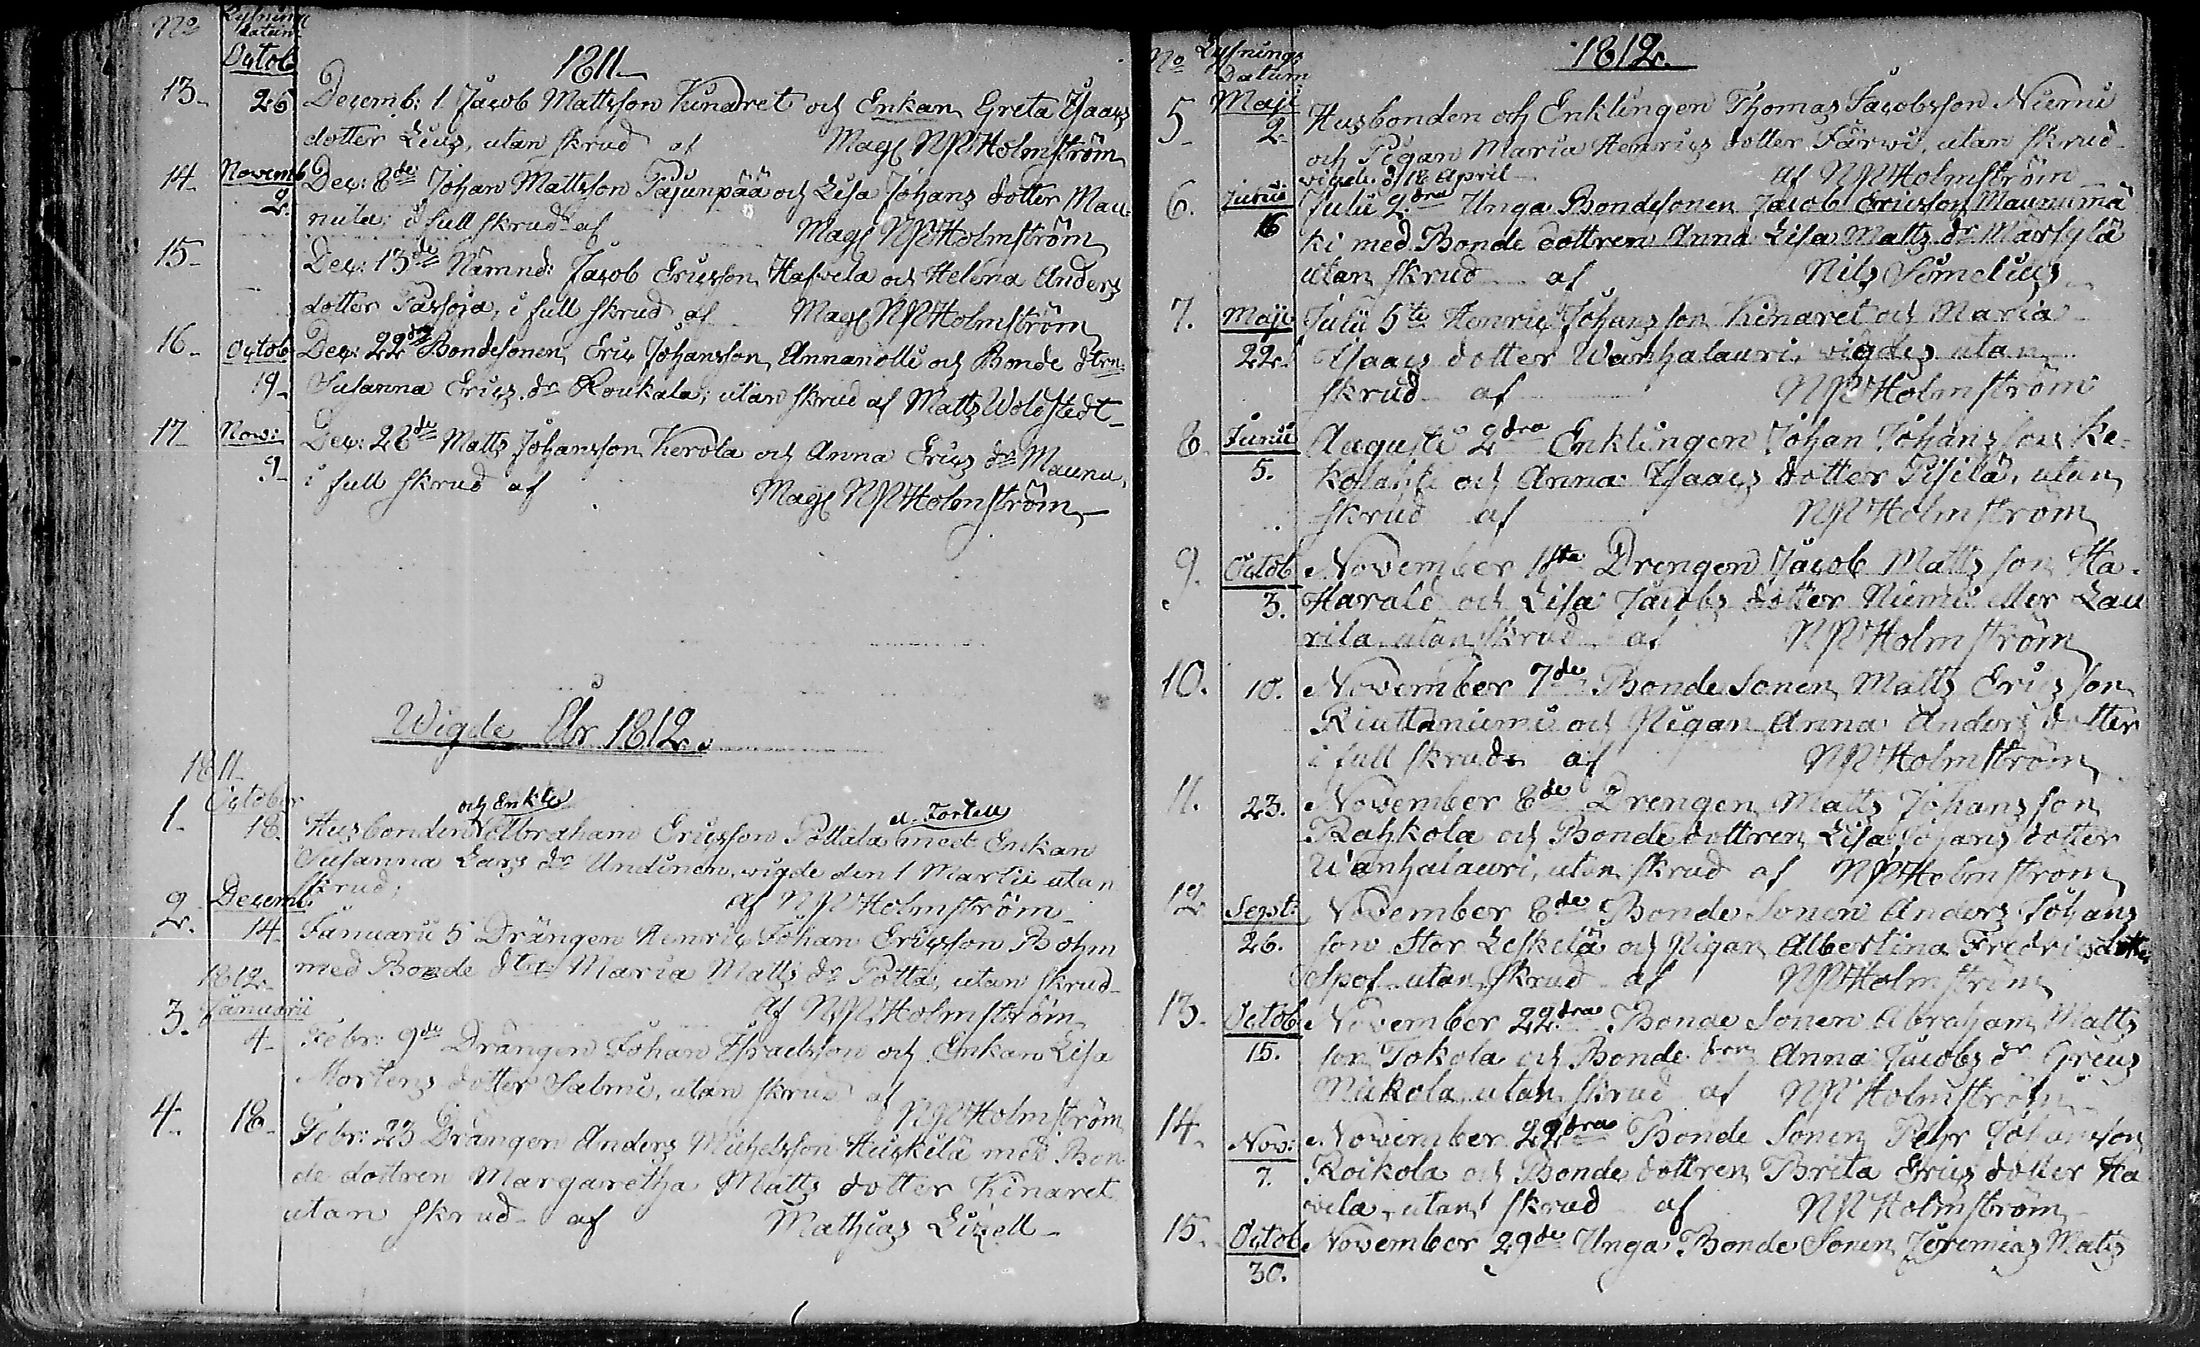 No Lysnings datum 1811
Octob
13. 26 Decemb: 1 Jacob Mattsson Kunaret och Enkan Greta Isaacs
dotter Lius, utan skrud af Mag NPHolmström
14. Novemb 2. Dec: 8de Johan Mattsson Pajunpää och Lisa Johans dotter Mau
nula; i full skrud af Mag NPHolmström
15. Dec: 13de Nämnd: Jacob Ericsson Hafvela och Helena Anders
dotter Passoja, i full skrud af Mag NPHolmström
16. Octob 19. Dec: 22dra Bondesonen Eric Johansson Annanolli och Bonde dtrn:
Susanna Erics dr Roukala; utan skrud af Matts Woldstedt
17 Nov: 9. Dec: 28de Matts Johansson Kerola och Anna Erics dr Maunu,
i full skrud af Mag NPHolmström
Wigde År 1812.
1811
October
och Enkl: a. Tortell
1. 18. Husbonden Abraham Ericsson Pottala med Enkan
Susanna Lars dr Undinen, vigde den 1 Martii utan
skrud; af NPHolmström
2. Decemb 14. Januarii 5 Drängen Henric Johan Ericsson Bohm
med Bonde dtr Maria Matts dr Potta, utan skrud
af NPHolmström
1812
Januarii
3. 4. Febr: 9de Drängen Johan Israelsson och Enkan Lisa
Mortens dotter Salmi, utan skrud af
NPHolmström
4. 18. Febr: 23 Drängen Anders Michelsson Huskila med Bon
de dottren Margaretha Matts dotter Kinaret
utan skrud af Mathias Lizell
No Lysnings Datum 1812.
5. Maji 2. Husbonden och Enklingen Thomas Jacobsson Niemi
och Pigan Maria Henrics dotter Färvi, utan skrud
vigde d: 18 April af NPHolmström
6. Junii 16 Julii 2dra Unga Bondesonen Jacob Ericsson Maunumä
ki med Bonde dottren Anna Lisa Matts dr Märsylä
utan skrud af Nils Simelius
7. Maji 22. Julii 5te Henric Johansson Kinaret och Maria
Isaacs dotter Wanhalauri vigdes utan
skrud af NPHolmström
8. Junii 5. Augusti 2dra Enklingen Johan Johansson Ke-
kolahti och Anna Isaacs dotter Pisilä, utan
skrud af NPHolmström
9. Octob 3. November 1sta Drengen Jacob Mattsson Ha-
Harald och Lisa Jacobs dotter Niemi eller Lau
rila utan skrud af NPHolmström
10. 10. November 7de Bonde Sonen Matts Ericsson
Riuttaniemi och Pigan Anna Anders dotter
i full skrud af NPHolmström
11. 23. November 8de Drengen Matts Johansson
Rahkola och Bonde dottren Lisa Johans dotter
Wanhalauri, utan skrud af NPHolmström
12 Sept: 26. November 8de Bonde Sonen Anders Johans
son Stor Leskelä och Pigan Albertina Fredrics
Spof utan skrud af NPHolmström
13. Octob 15. November 22dra Bonde Sonen Abraham Matts
son Tokola och Bonde Anna Jacobs dr Greus
Mickola utan skrud af NPHolmström
14. Nov: 7. November 22dra Bonde Sonen Pehr Johansson
Roikola och Bonde dottren Brita Erics dotter Ha
vela, utan skrud af NPHolmström
15. Octob 30. November 29de Unga Bonde Sonen Jeremias Matts